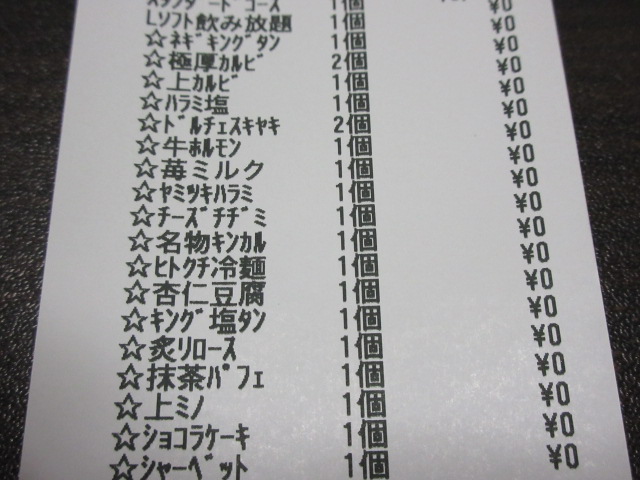 スタンダードコース 1個 ¥0
Lソフト飲み放題 1個 ¥0
☆ネギキングタン 1個 ¥0
☆極厚カルビ 2個 ¥0
☆上カルビ 1個 ¥0
☆ハラミ塩 1個 ¥0
☆ドルチェスキヤキ 2個 ¥0
☆牛ホルモン 1個 ¥0
☆苺ミルク 1個 ¥0
☆ヤミツキハラミ 1個 ¥0
☆チーズチヂミ 1個 ¥0
☆名物キンカル 1個 ¥0
☆ヒトクチン冷麺 1個 ¥0
☆杏仁豆腐 1個 ¥0
☆キング塩タン 1個 ¥0
☆炙リロース 1個 ¥0
☆抹茶パフェ 1個 ¥0
☆上ミノ 1個 ¥0
☆ショコラケーキ 1個 ¥0
☆シャーベット 1個 ¥0